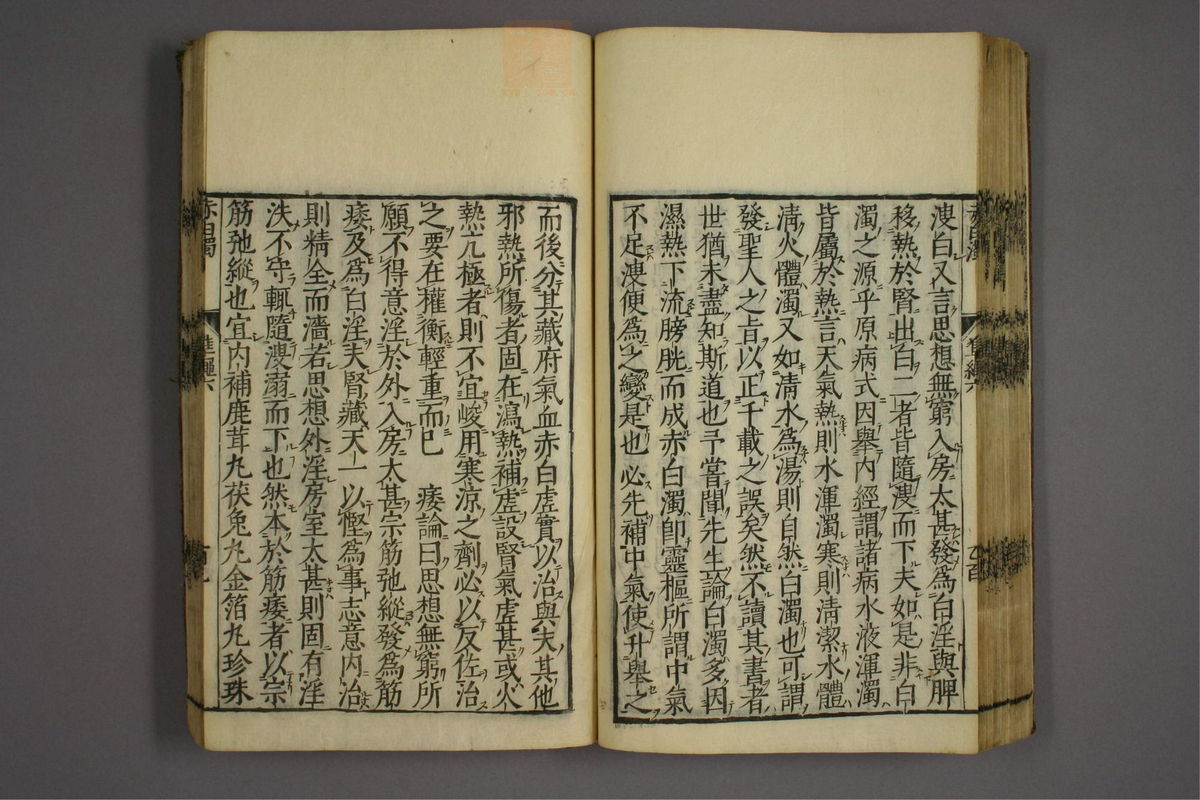 溲白又言思想無窮入房太甚發為白淫與脾
移熱於腎出白二者皆隨溲而下夫如是非白
濁之源乎原病式因舉内經謂諸病水液渾濁
皆屬於熱言天氣熱則水渾濁寒則清潔水體
清火體濁又如清水為湯則自然白濁也可謂
發聖人之旨以正千載之誤矣然不讀其書者
世猶未盡知斯道也予嘗聞先生論白濁多因
濕熱下流膀胱而成赤白濁即靈樞所謂中氣
不足溲便為之變是也必先補中氣使升舉之
而後分其藏府氣血赤白虚實以治與夫其他
邪熱所傷者固在瀉熱補虚設腎氣虚甚或火
熱亢極者則不宜峻用寒凉之劑必以反佐治
之要在權衡輕重而已 痿論曰思想無窮所
願不得意淫於外入房太甚宗筋弛縱發為筋
痿及為白淫夫腎藏天一以慳為事志意内治
則精全而濇若思想外淫房室太甚則固有淫
泆不守輒隨溲溺而下也然本於筋痿者以宗
筋弛縱也宜内補鹿茸丸茯兔丸金箔丸珍珠
赤白濁